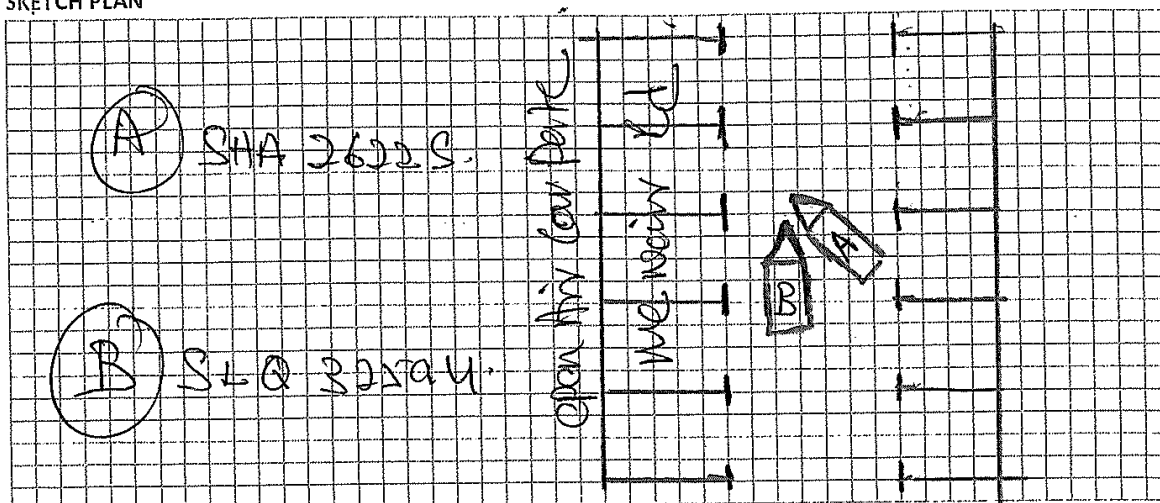 SKETCH PLAN
A SHA 2622S.
B SLQ 3259U.
open Air Car park
A
B